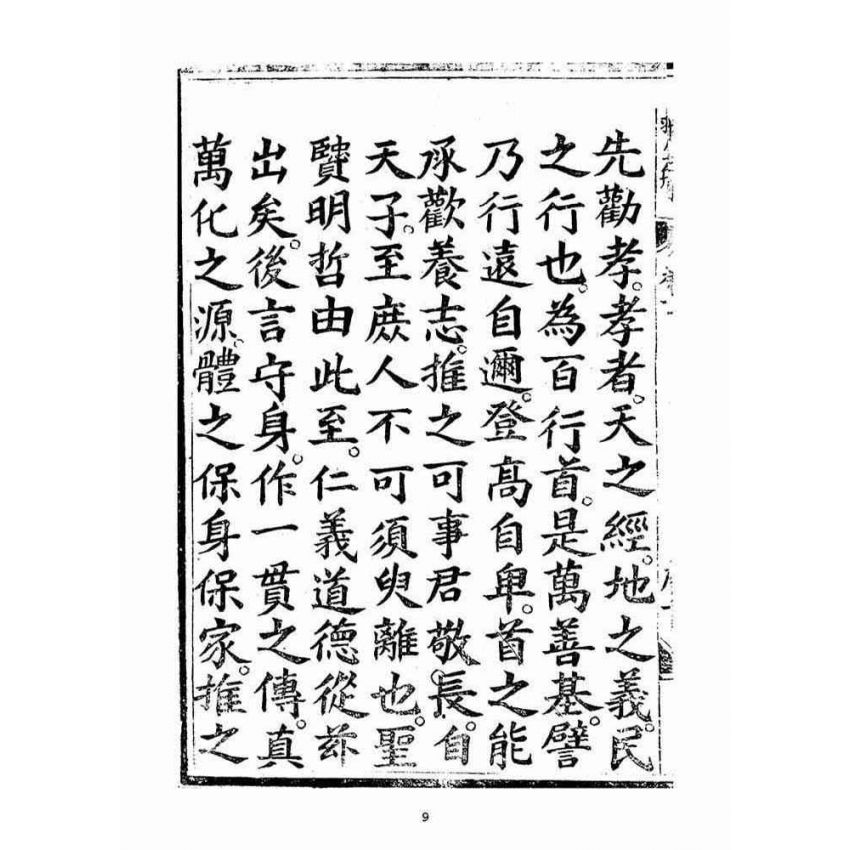 先勸孝。孝者。天之經。地之義。民
之行也。為百行首。是萬善基。譬
乃行遠自邇。登高自卑。首之能
承歡養志。推之可事君敬長。自
天子。至庶人不可須臾離也。聖
賢明哲由此至。仁義道德從茲
出矣。後言守身。作一貫之傳。真
萬化之源。體之保身保家。推之
9